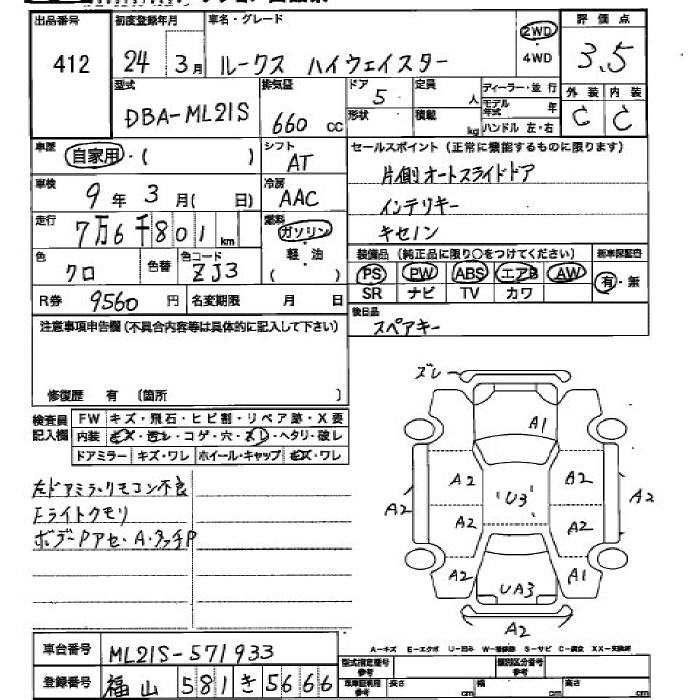 出品番号 初度登録年月 車名・グレード 評価点
412 24 3月 ルークス ハイウェイスター 2WD ・ 4WD 3.5
型式 排気量 ドア 定員 ディーラー・並行 外装 内装
DBA-ML21S 660 cc 5 人 モデル年式 年 C C
形状 積載 kg ハンドル 左・右
車歴 自家用・( ) シフト AT セールスポイント(正常に機能するものに限ります)
片側オートスライドドア
車検 9年 3月( 日) 冷房 AAC インテリキー
走行 7万6千801km 燃料 ガソリン・軽油 ( ) キセノン
色 クロ 色替 色コード ZJ3 装備品(純正品に限り○をつけてください) 新車保証書
PS PW ABS エアB AW 有・無
SR ナビ TV カワ
R券 9560円 名変期限 月 日 後日品
スペアキー
注意事項申告欄(不具合内容等は具体的に記入して下さい)
修復歴 有 (箇所 )
検査員記入欄 FW キズ・飛石・ヒビ割・リペア跡・X要
内装 キズ・汚レ・コゲ・穴・スレ・ヘタリ・破レ
ドアミラー キズ・ワレ ホイール・キャップ キズ・ワレ
左ドアミラーリモコン不良
Fライトクモリ
ボデーPアセ・A・タッチP
ズレ
A1
A2 A2
A2 U3 A2
A2 A2
A2 A1
UA3
A2
A-キズ E-エクボ U-凹み W-補修跡 S-サビ C-腐食 XX-交換済
車台番号 ML21S-571933 型式指定番号 参考 類別区分番号 参考
登録番号 福山 581 き 5666 車車証明用 参考 長さ cm 幅 cm 高さ cm